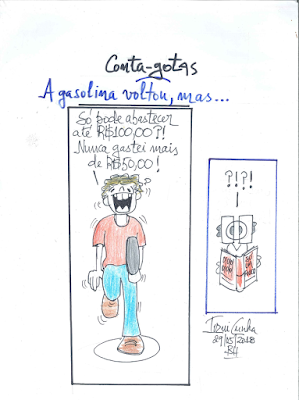 Conta-gotas
A gasolina voltou, mas...
Só pode abastecer
até R$100,00?!
Nunca gastei mais
de R$50,00!
?!?!
Toni Cunha
29/05/2018
BH